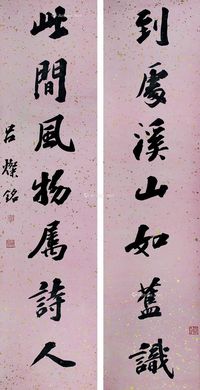 到處溪山如舊識
此間風物屬詩人
呂燦銘